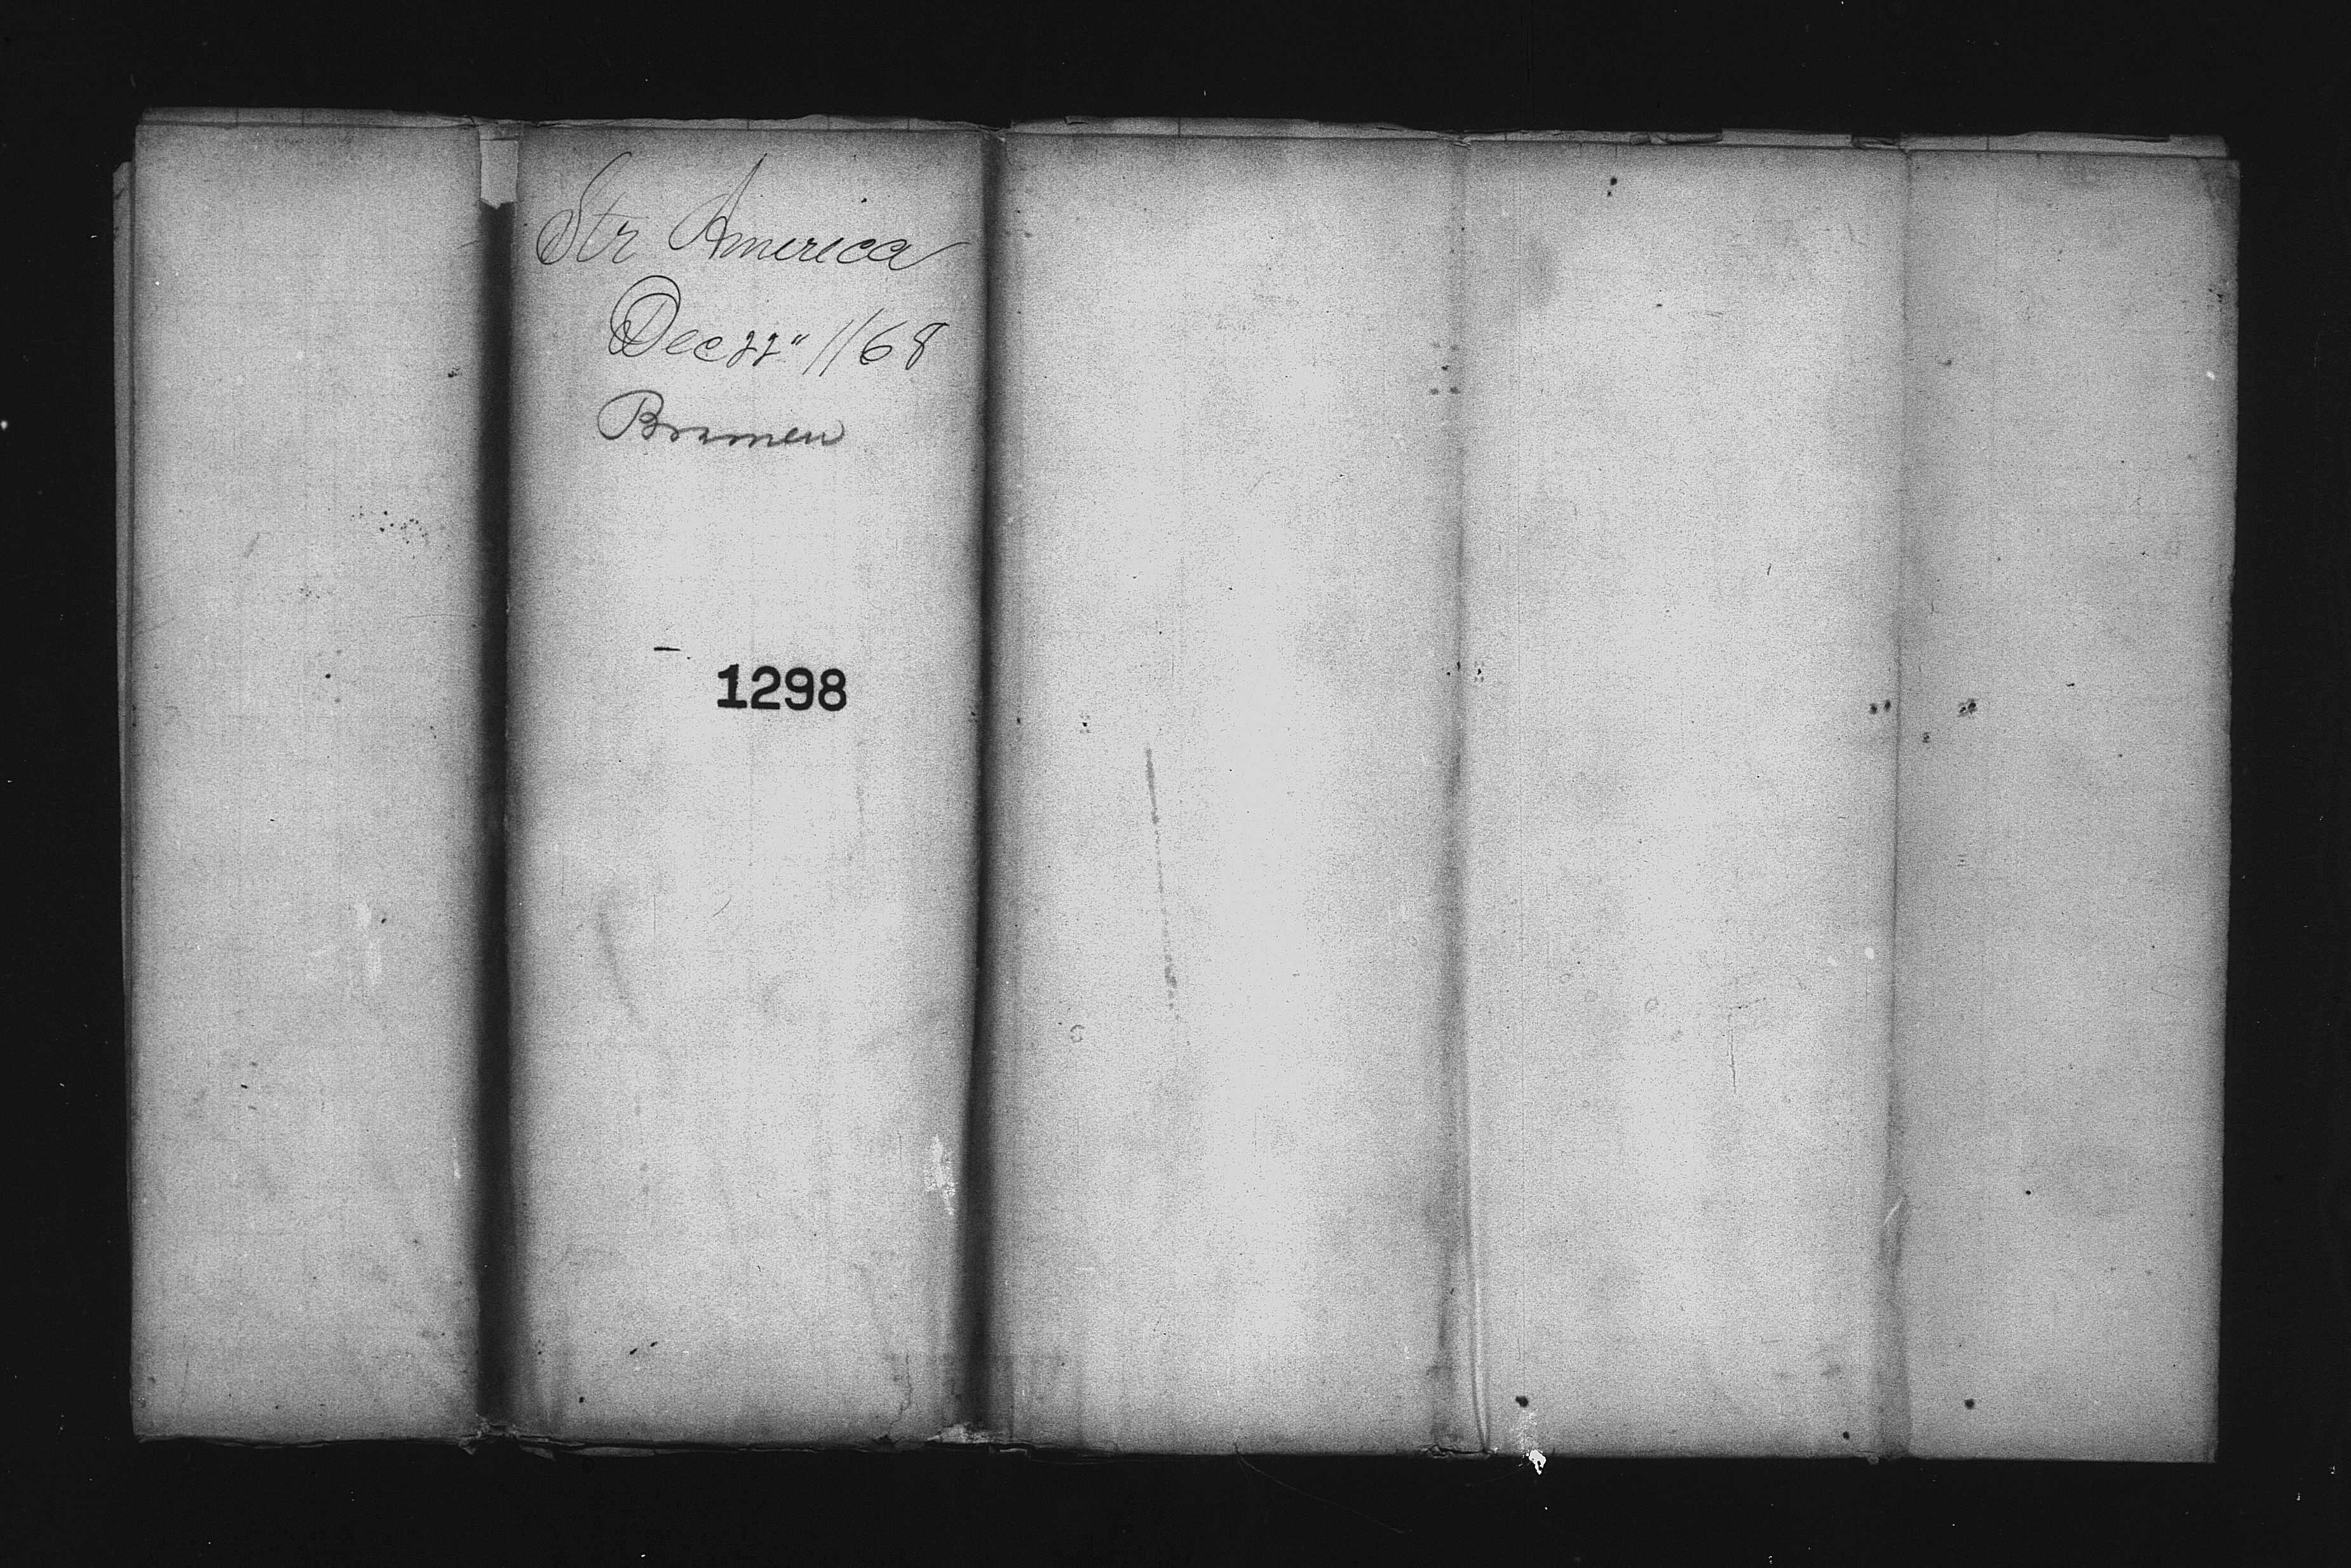 Str America
Dec 22" //68
Bremen
1298